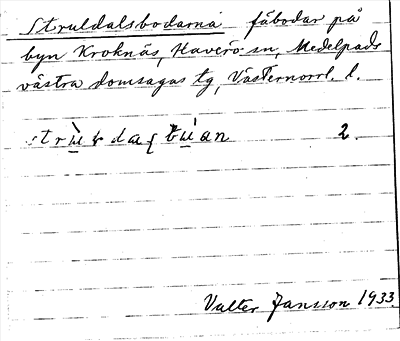 Struldalsbodarna fäbodar på
byn Kroknäs, Haverö sn, Medelpads
västra domsagas tg, Västernorrl. l.
2.
Valter Jansson 1933.